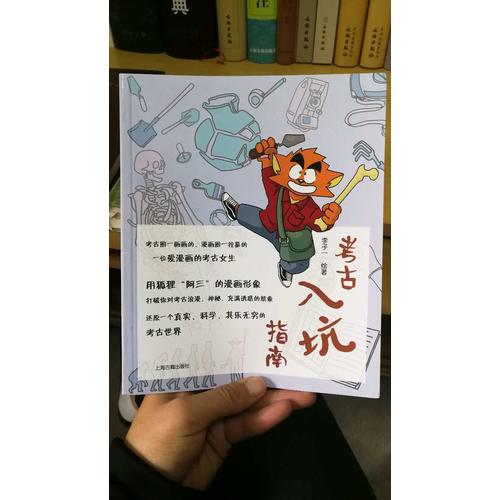 考古圈一画画的，漫画圈一挖墓的
一位爱漫画的考古女生
用狐狸“阿三”的漫画形象
打破你对考古浪漫、神秘、充满诱惑的想象
还原一个真实、科学、其乐无穷的
考古世界
上海古籍出版社
李子一 绘著
考古
入坑
指南
典